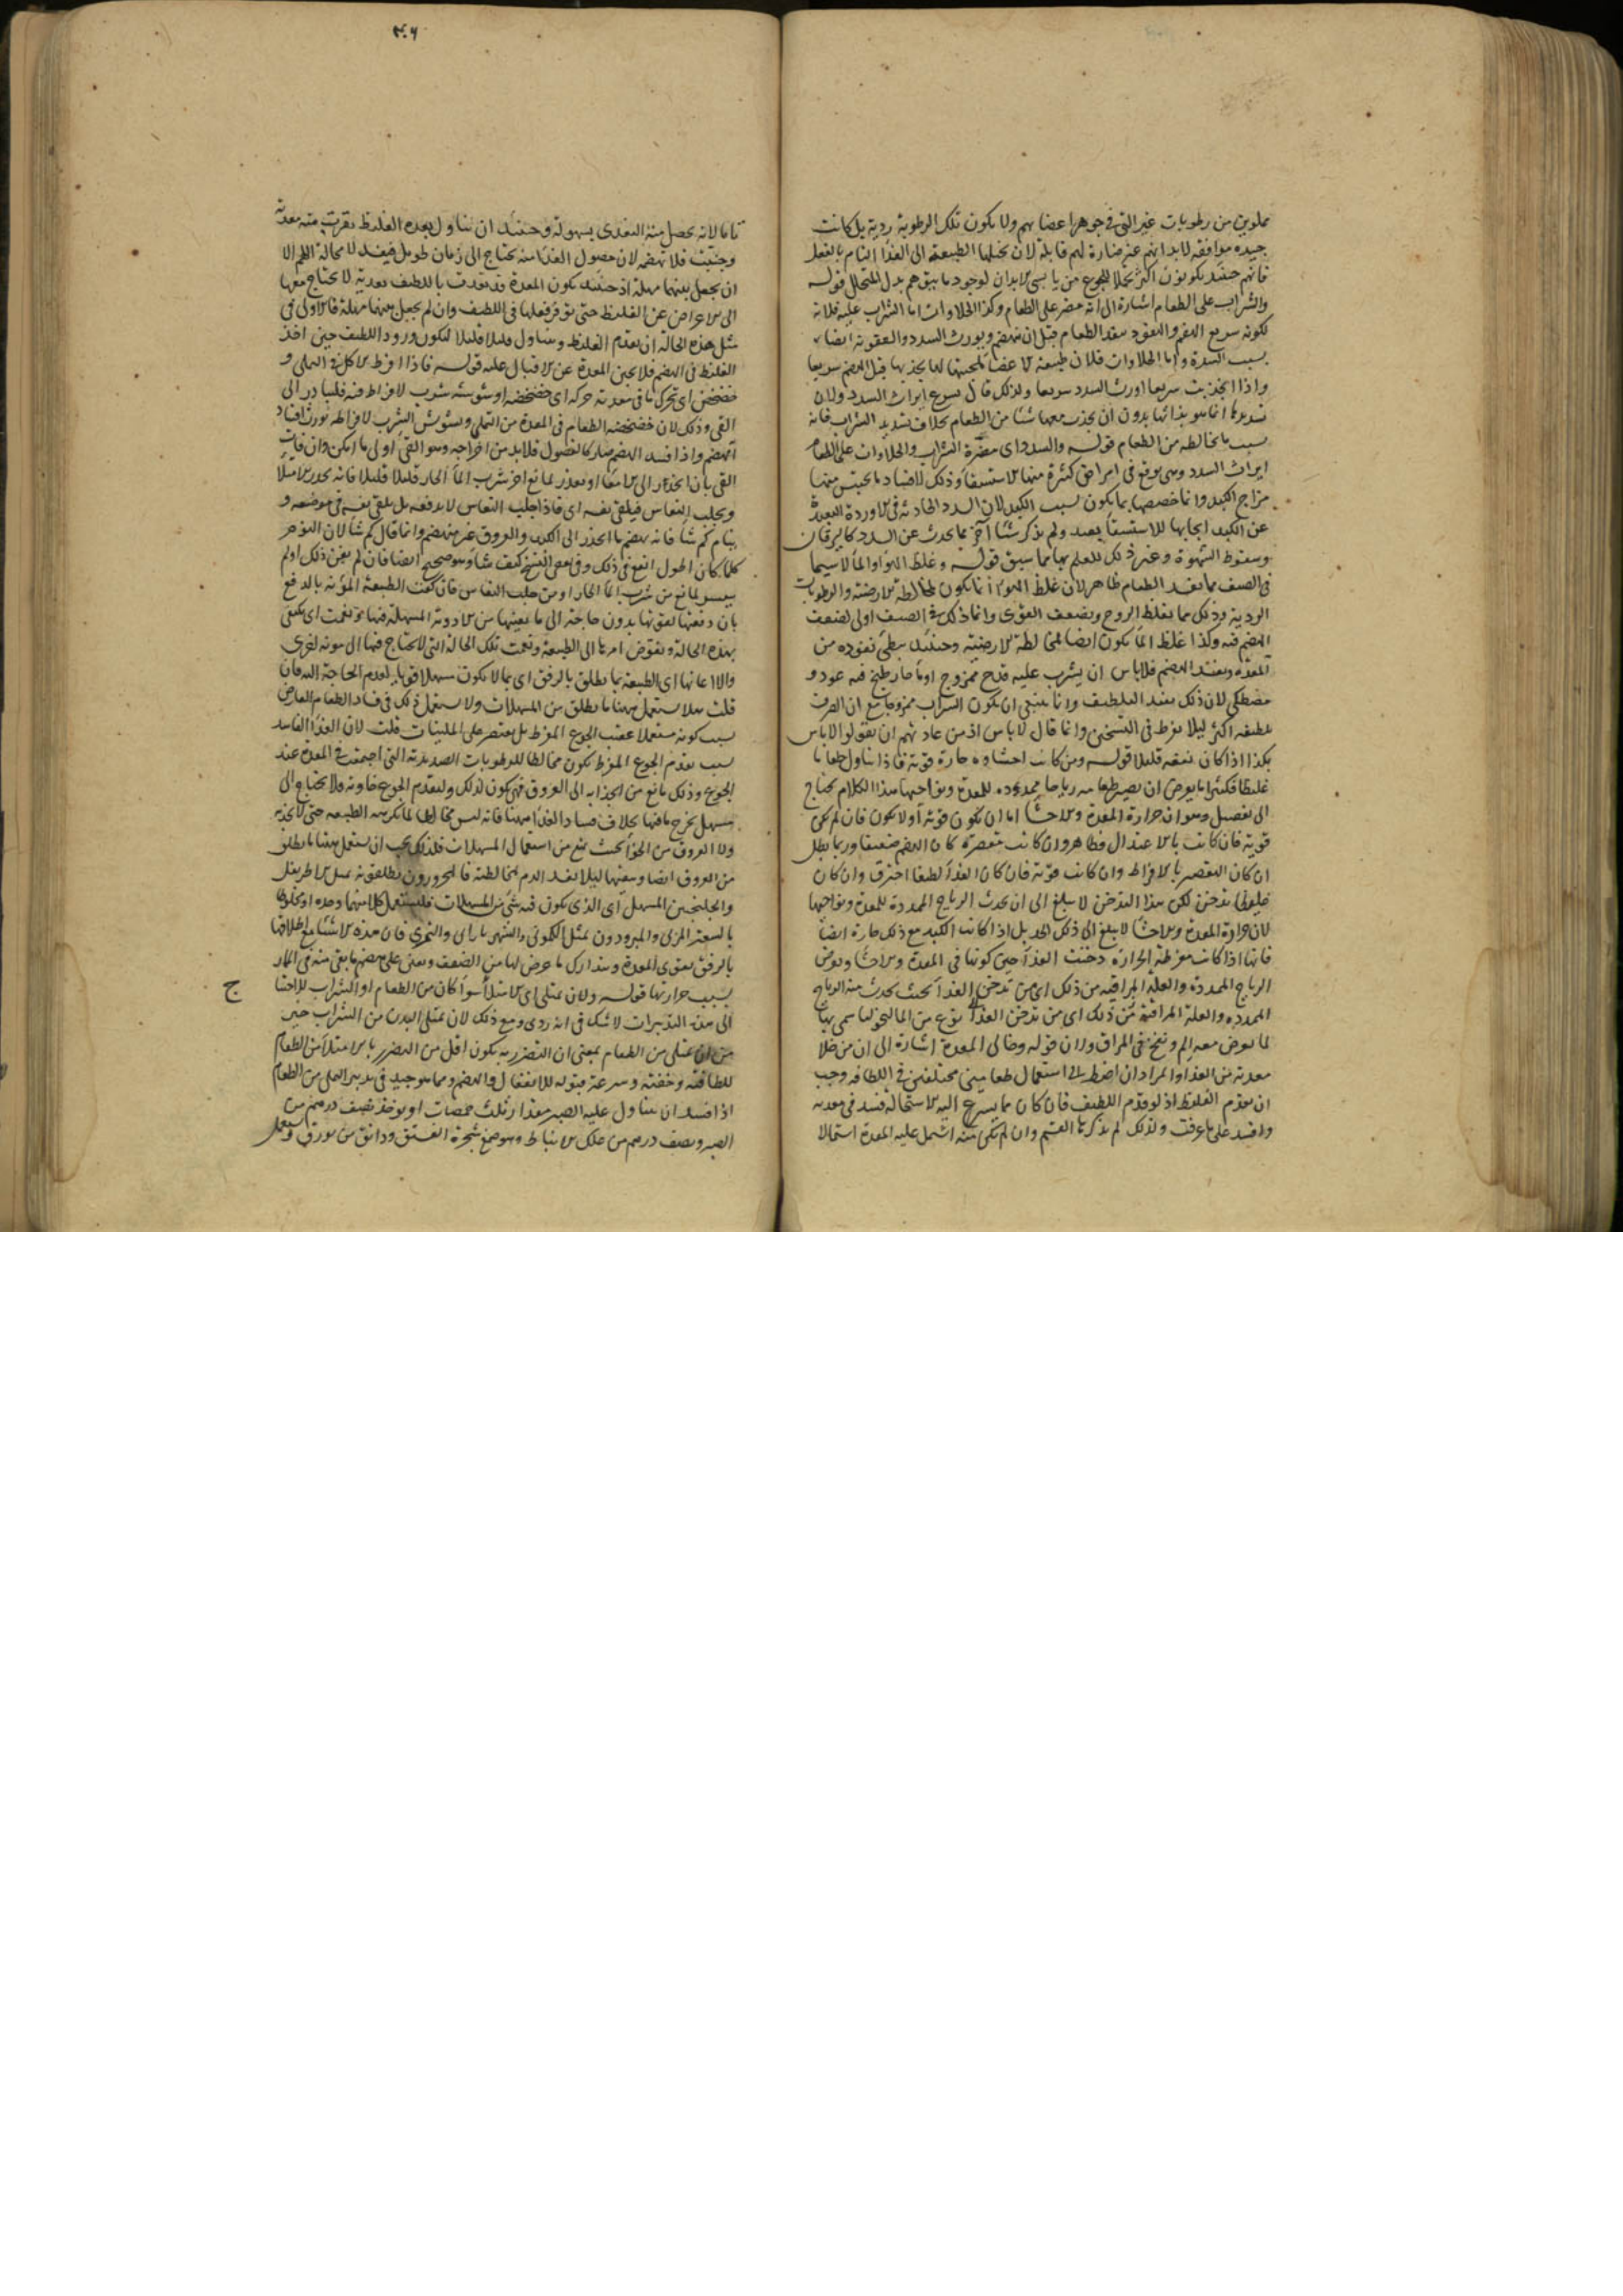 مملوين من رطوبات غير التى فى جوهر اعضايهم ولا يكون تلك الرطوبة ردية بل كانت
جيده موافقه لابدانهم غير ضارة لهم قابلة لان تحيلها الطبيعة الى الغذا التام بالفعل
فانهم حينئذ يكونون اكثر تحملا للجوع من يابسى الابدان لوجود ما يبقى هم بدل المتحلل قوله
والشراب على الطعام اشارة الى انه مضر على الطعام وكذا الحلاوات اما الشراب عليه فلانه
لكونه سريع الهضم والنفوذ ينفذ الطعام قبل ان ينهضم ويورث السدد والعفونه ايضا
بسبب السدة واما الحلاوات فلان طبيعة الاعضا لمحبتها لها يجذبها قبل الهضم سريعا
واذا انجذبت سريعا اورث السدد سريعا ولذلك قال يسرع ايراث السدد ولان
تسديدها انما هو بذاتها بدون ان يجذب معها شئا من الطعام بخلاف تسديد الشراب فانه
بسبب ما يخالطه من الطعام قوله والسدد اى مضرة الشراب والحلاوات على الطعام
ايراث السدد وهى يوقع فى امراض كثيرة منها الاستسقا وذلك لافساد ما يحتبس منها
مزاج الكبد وانما خصصها بما يكون بسبب الكبد لان السدد الحادثة فى الاوردة البعيدة
عن الكبد ايجابها للاستسقا بعيد ولم يذكر شئا آخر مما يحدث عن السدد كاليرقان
وسقوط الشهوة وغير ذلك للعلم بها مما سبق قوله وغلظ الهوا والما لا سيما
فى الصيف مما يفسد الطعام ظاهر لان غلظ الهوا انما يكون لمخالطة الارضية والرطوبات
الردية وذلك مما يغلظ الروح ويضعف القوى وانما ذلك فى الصيف اولى لضعف
الهضم فيه وكذا غلظ الما يكون ايضا لمخالطة الارضية وحينئذ يبطئ نفوذه من
المعده ويفسد الهضم فلا باس ان يشرب عليه قدح ممزوج او ما حار طبخ فيه عود و
مصطكى لان ذلك يفيد التلطيف وانما ينبغى ان يكون الشراب ممزوجا مع ان الصرف
تلطيفه اكثر ليلا يفرط فى التسخين وانما قال لا باس اذ من عادتهم ان يقولوا لا باس
بكذا اذا كان نفعه قليلا قوله ومن كانت احشاوه حارة قوية فاذا تناول طعاما
غليظا فكثيرا ما يعرض ان يصير طعامه رياحا ممددة للمعدة ونواحيها هذا الكلام يحتاج
الى تفصيل وهو ان حرارة المعدة والاحشا اما ان يكون قوية او لا يكون فان لم تكن
قوية فان كانت بالاعتدال فظاهر وان كانت مقصرة كان الهضم ضعيفا وربما بطل
ان كان التقصير بالافراط وان كانت قوية فان كان الغذا لطيفا احترق وان كان
غليظا تدخن لكن هذا التدخن لا يبلغ الى ان يحدث الرياح الممددة للمعدة ونواحيها
لان حرارة المعدة والاحشا لا يبلغ الى ذلك الحد بل اذا كانت الكبد مع ذلك حارة ايضا
فانها اذا كانت مفرطة الحرارة دخنت الغذا حين كونها فى المعدة والاحشا ويعرض
الرياح الممددة والعلة المراقية من ذلك اى من تدخن الغذا بحيث يحدث منه الرياح
الممدده والعلة المراقية من ذلك اى من تدخن الغذا نوع من المالنخوليا سمى بها
لما يعرض معه الم ونفخ فى المراق وان قوله وخالى المعدة اشارة الى ان من خلا
معدته من الغذا والمراد ان اضطر الى استعمال طعامين مختلفين فى اللطافه وجب
ان يقدم الغليظ اذ لو قدم اللطيف فان كان مما يسرع اليه الاستحالة فسد فى معدته
وافسد على ما عرفت ولذلك لم يذكر هذا القسم وان لم يكن منه اشتمل عليه المعدة اشتمالا
٣٠٦
تاما لانه يحصل منه التغذى بسهولة وحينئذ ان تناول بعده الغليظ نفرت منه معدته
وجنبت فلا تهضمه لان حصول الغذا منه يحتاج الى زمان طويل فيفسد لا محالة اللهم الا
ان يجعل بينهما مهلة اذ حينئذ يكون المعدة قد تغدت باللطيف تغدية لا يحتاج معها
الى الاعراض عن الغليظ حتى توفر فعلها فى اللطيف وان لم يجعل بينهما مهلة فالاولى فى
مثل هذه الحالة ان يقدم الغليظ ويتناول قليلا قليلا ليكون ورود اللطيف حين اخذ
الغليظ فى الهضم فلا تجبن المعدة عن الاقبال عليه قوله فاذا افرط الاكل فى التملى و
خضخض اى تحرك ما فى معدته حركه اى خضخضه او شوشه شرب لافراط فيه فليبادر الى
القى وذلك لان خضخضه الطعام فى المعدة من التملى وتشويش الشرب لافراطه يورث افساد
الهضم واذا فسد الهضم صار كالفضول فلا بد من اخراجه وهو القى اولى ما امكن وان فات
القى بان انحدر الى الامعا او تعذر لمانع اخر شرب الما الحار قليلا قليلا فانه يحدر الامتلا
ويجلب النعاس فيلقى نفسه اى فاذا جلب النعاس لا يدفعه بل يلقى نفسه فى موضعه و
ينام كم شا فانه يهضم ما انحدر الى الكبد والعروق غير منهضم وانما قال كم شا لان النوم
كلما كان اطول انفع فى ذلك وفى بعض النسخ كيف شا وهو صحيح ايضا فان لم يغن ذلك او لم
يتيسر لمانع من شرب الما الحار او من جلب النعاس فان كفت الطبيعة المؤنة بالدفع
بان دفعتها بقوتها بدون حاجة الى ما يعينها من الادوية المسهلة فبها ونعمت اى يكتفى
بهذه الحالة ويفوض امرها الى الطبيعة ونعمت تلك الحالة التى لا يحتاج فيها الى مونه اخرى
والا اعانها اى الطبيعة بما يطلق بالرفق اى بما لا يكون مسهلا قويا لعدم الحاجة اليه فان
قلت هلا يستعمل ههنا ما يطلق من المسهلات ولا يستعمل ذلك فى فساد الطعام العارض
بسبب كونه مستعملا عقيب الجوع المفرط بل يقتصر على الملينات قلت لان الغذا الفاسد
بسبب تقدم الجوع المفرط يكون مخالطا للرطوبات الصديدية التى اجتمعت فى المعدة عند
الجوع وذلك مانع من انجذابه الى العروق فهى يكون لذلك ولتقدم الجوع خاوية ولا يحتاج الى
مسهل يخرج ما فيها بخلاف فساد الغذا ههنا فانه ليس مخالطا لما تكرهه الطبيعه حتى لا يجذبه
ولا العروق من الخوا بحيث يمنع من استعمال المسهلات فلذلك يجب ان يستعمل ههنا ما يطلق
من العروق ايضا وينقيها ليلا يفسد الدم لمخالطته فالمحرورون يطلقونه بمثل الاطريفل
والجلنجبين المسهل اى الذى يكون فيه شئ من المسهلات فليستعمل كلا منهما وحده او مخلوطا
بالسعتر المربى والمبرودون بمثل الكمونى والشهرياران والتمرى فان هذه الاشيا مع اطلاقها
بالرفق يقوى المعدة ويتدارك ما عرض لها من الضعف ويعين على هضم ما بقى منه فى المار
بسبب حرارتها قوله ولان يمتلى اى الامتلا سوا كان من الطعام او الشراب للاحتيا
الى هذه التدبيرات لا شك فى انه ردى ومع ذلك لان يمتلى البدن من الشراب خير
من ان يمتلى من الطعام بمعنى ان التضرر به يكون اقل من التضرر بالامتلا من الطعام
للطافته وخفته وسرعة قبوله للانفعال والهضم ومما هو جيد فى تدبير التملى من الطعام
اذا فسد ان يتناول عليه الصبر مقدار ثلث حمصات او يوخذ نصف درهم من
الصبر ونصف درهم من علك الانباط وهو صمغ شجرة الفستق ودانق من بورق ويستعمل
ج